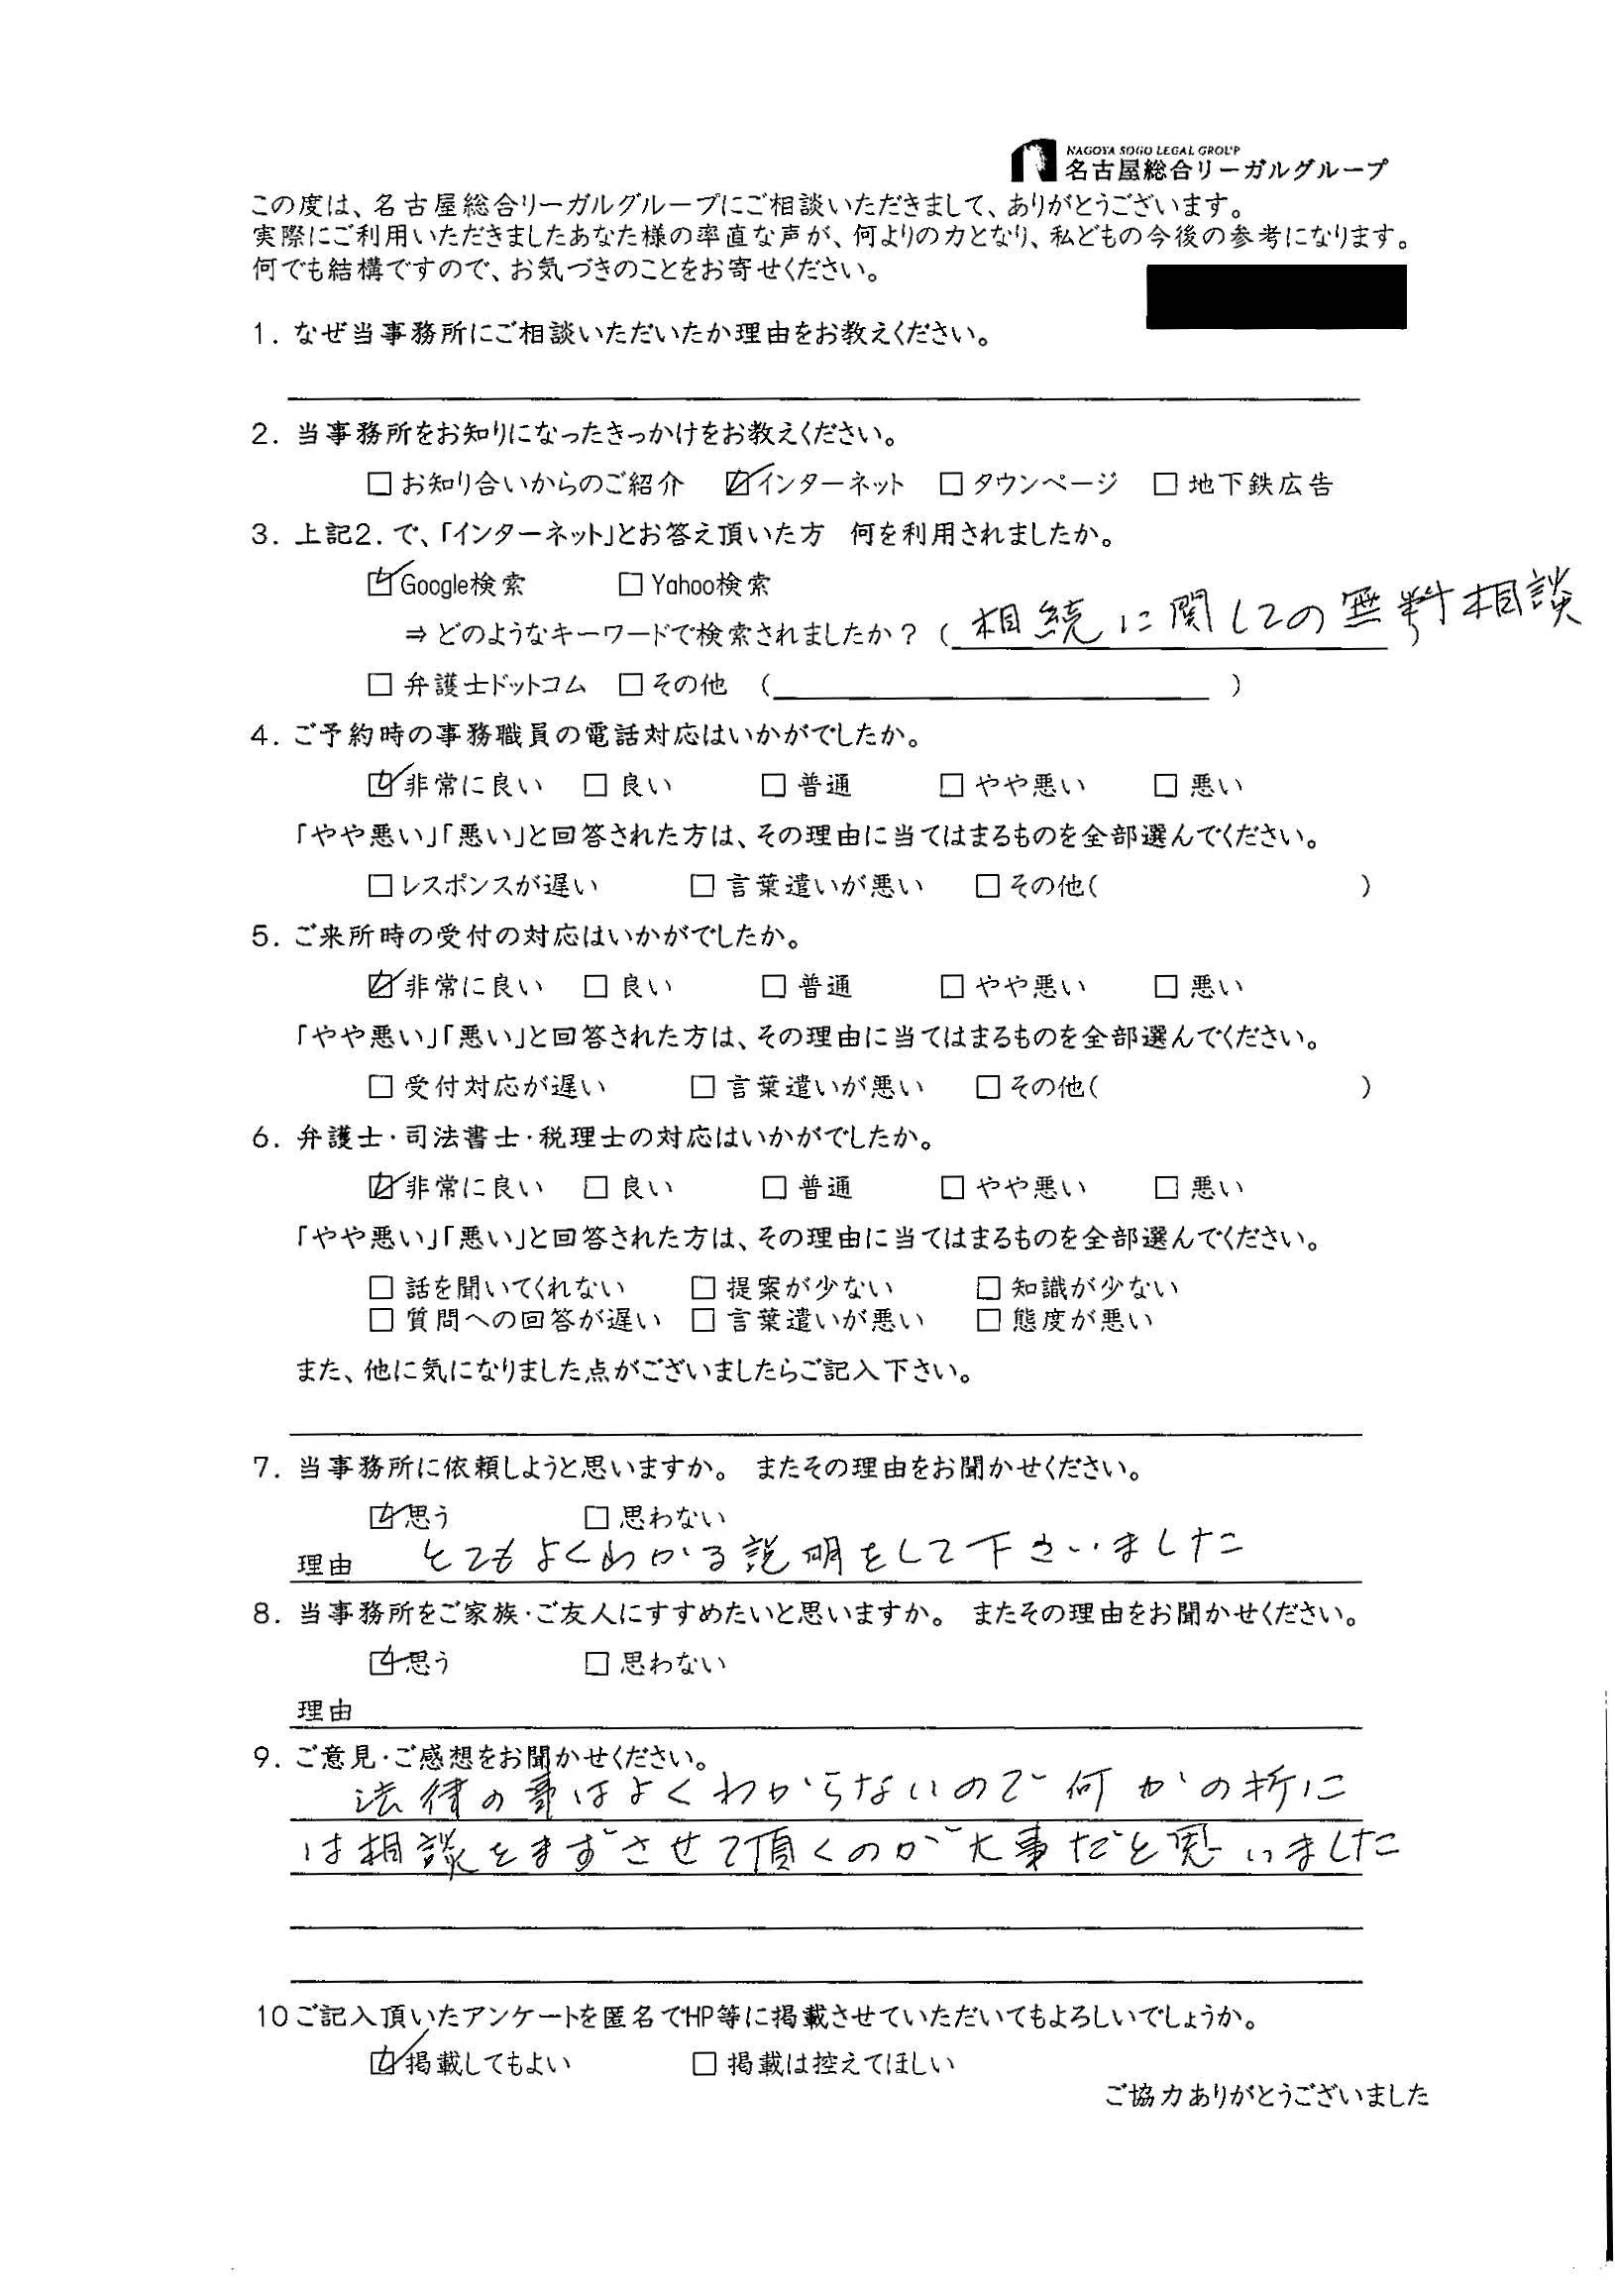 NAGOYA SOGO LEGAL GROUP
名古屋総合リーガルグループ
この度は、名古屋総合リーガルグループにご相談いただきまして、ありがとうございます。
実際にご利用いただきましたあなた様の率直な声が、何よりの力となり、私どもの今後の参考になります。
何でも結構ですので、お気づきのことをお寄せください。
1. なぜ当事務所にご相談いただいたか理由をお教えください。
2. 当事務所をお知りになったきっかけをお教えください。
□ お知り合いからのご紹介 ☑ インターネット □ タウンページ □ 地下鉄広告
3. 上記2. で、「インターネット」とお答え頂いた方 何を利用されましたか。
☑ Google検索 □ Yahoo検索
⇒ どのようなキーワードで検索されましたか？ ( 相続に関しての無料相談 )
□ 弁護士ドットコム □ その他 ( )
4. ご予約時の事務職員の電話対応はいかがでしたか。
☑ 非常に良い □ 良い □ 普通 □ やや悪い □ 悪い
「やや悪い」「悪い」と回答された方は、その理由に当てはまるものを全部選んでください。
□ レスポンスが遅い □ 言葉遣いが悪い □ その他( )
5. ご来所時の受付の対応はいかがでしたか。
☑ 非常に良い □ 良い □ 普通 □ やや悪い □ 悪い
「やや悪い」「悪い」と回答された方は、その理由に当てはまるものを全部選んでください。
□ 受付対応が遅い □ 言葉遣いが悪い □ その他( )
6. 弁護士・司法書士・税理士の対応はいかがでしたか。
☑ 非常に良い □ 良い □ 普通 □ やや悪い □ 悪い
「やや悪い」「悪い」と回答された方は、その理由に当てはまるものを全部選んでください。
□ 話を聞いてくれない □ 提案が少ない □ 知識が少ない
□ 質問への回答が遅い □ 言葉遣いが悪い □ 態度が悪い
また、他に気になりました点がございましたらご記入下さい。
7. 当事務所に依頼しようと思いますか。 またその理由をお聞かせください。
☑ 思う □ 思わない
理由 とてもよくわかる説明をして下さいました
8. 当事務所をご家族・ご友人にすすめたいと思いますか。 またその理由をお聞かせください。
☑ 思う □ 思わない
理由
9. ご意見・ご感想をお聞かせください。
法律の事はよくわからないので何かの折に
は相談をまずさせて頂くのが大事だと思いました
10 ご記入頂いたアンケートを匿名でHP等に掲載させていただいてもよろしいでしょうか。
☑ 掲載してもよい □ 掲載は控えてほしい
ご協力ありがとうございました